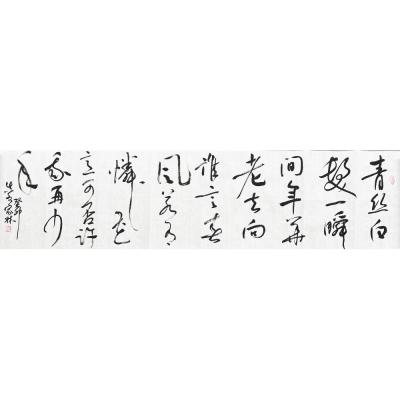 青丝白
髮一瞬
间年華
老去向
谁言春
风若有
憐花
意可否许
我再少
年
癸卯